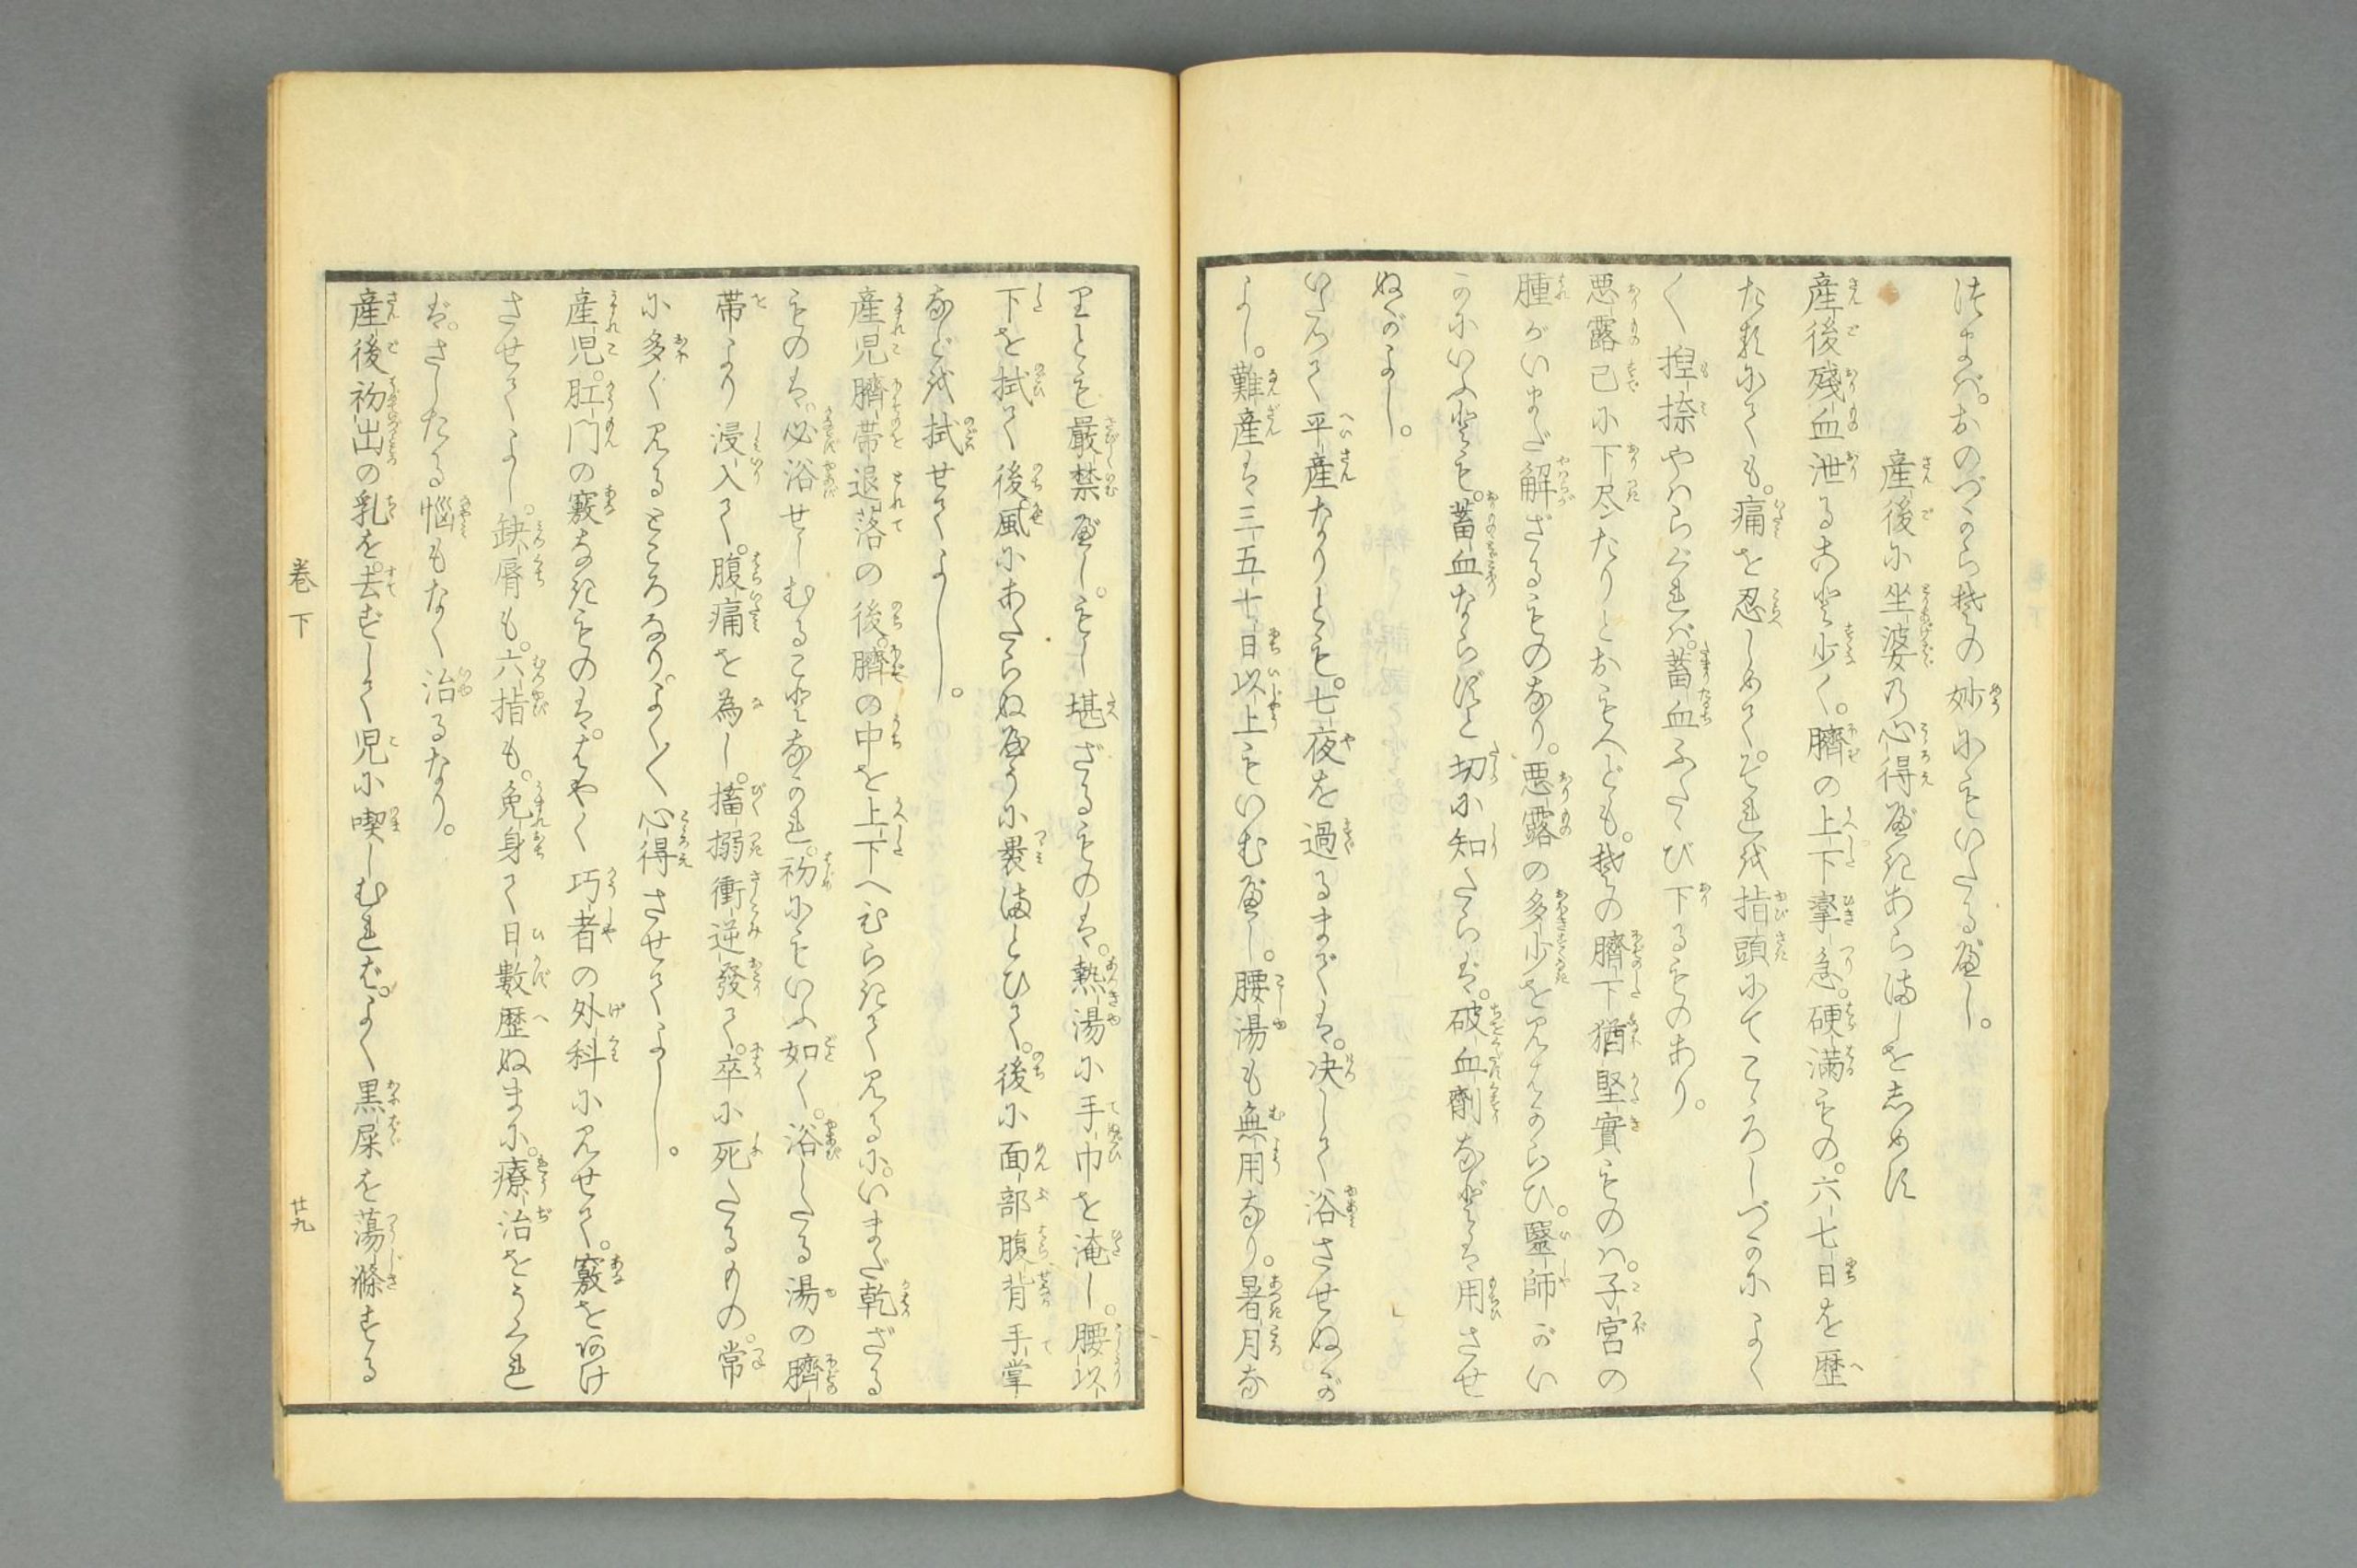 はまバ。おのづから其の妙にもいたるべし。
産後に坐婆乃心得べきあらましをしめす
産後殘血泄るゝこと少く。臍の上下攣急。硬満もの。六七日を歴
たれにても。痛を忍しめて。それを指頭にてころしづかによく
〳揑捺やハらぐれバ。蓄血ふたゝび下るものあり。
悪露已に下尽たりとおもへども。其の臍下猶堅實ものハ。子宮の
腫がいまだ解ざるものなり。悪露の多少を見はからひ。醫師がい
かにいふとも。蓄血ならずと切に知たらバ。破血劑などは用させ
ぬがよし。
いたつて平産なりとも。七夜を過るまでハ。决して浴させぬが
よし。難産は三五十日以上もいむべし。腰湯も無用なり。暑月な
りとも嚴禁べし。もし堪ざるものは。熱湯に手巾を淹し。腰以
下を拭ひて後風にあたらぬやうに裹まとひて。後に面部腹背手掌
などを拭せてよし。
産児臍帯退落の後。臍の中を上下へひらきて見るに。いまだ乾ざる
ものは。必浴せしむることなかれ。初にもいふ如く。浴したる湯の臍
帯より浸入て。腹痛を為し。搐搦衝逆發て。卒に死たるもの。常
に多く見るところなり。よく〳〵心得させてよし。
産児。肛門の竅なきものは。はやく巧者の外科に見せて。竅をあけ
させてよし。缺脣も。六指も。免身て日數歴ぬまに。療治をうくれ
ば。さしたる惱もなく治るなり。
産後初出の乳を。去ずして児に喫しむれば。よく黒屎を蕩滌する
巻下
廿九